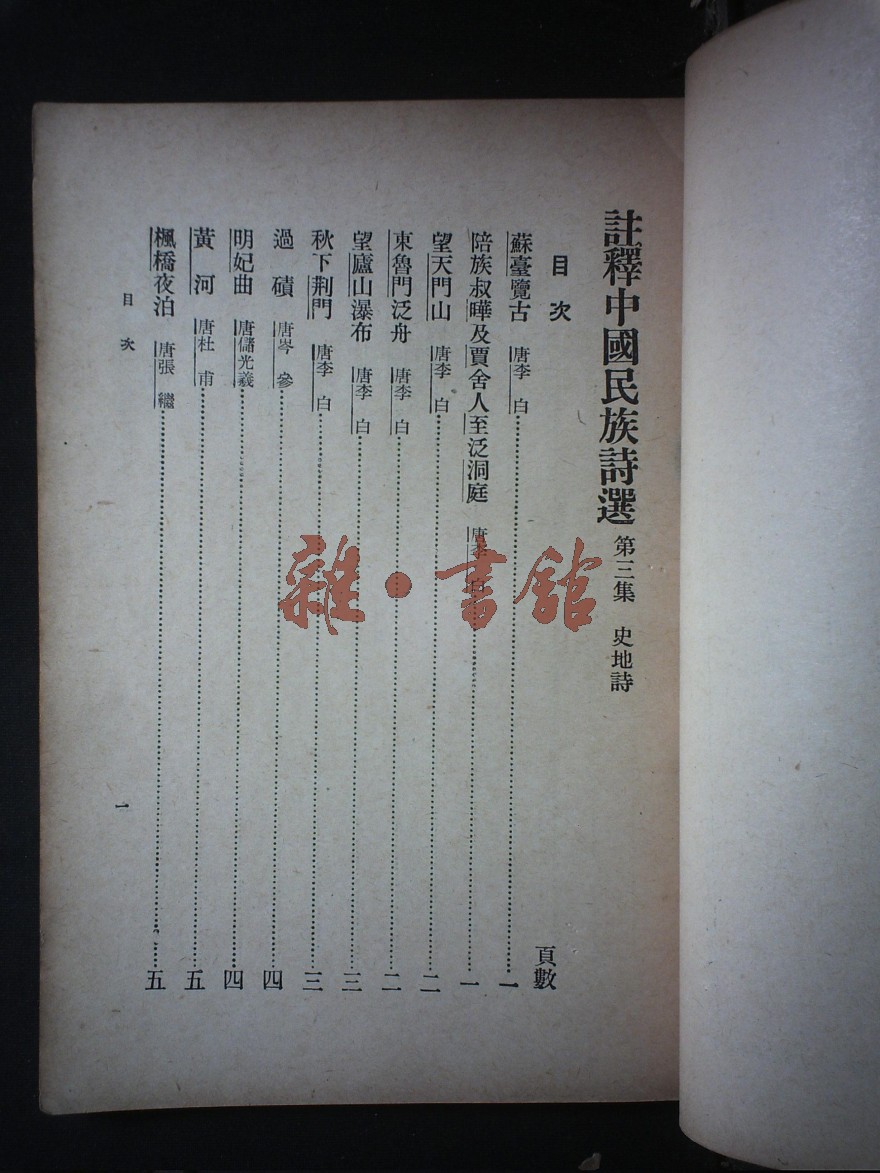 註釋中國民族詩選 第三集 史地詩
目次
頁數
蘇臺覽古 唐李白……一
陪族叔曄及賈舍人至泛洞庭 唐李白……一
望天門山 唐李白……二
東魯門泛舟 唐李白……二
望廬山瀑布 唐李白……三
秋下荆門 唐李白……三
過磧 唐岑參……四
明妃曲 唐儲光羲……四
黃河 唐杜甫……五
楓橋夜泊 唐張繼……五
目次
一
雜·書館